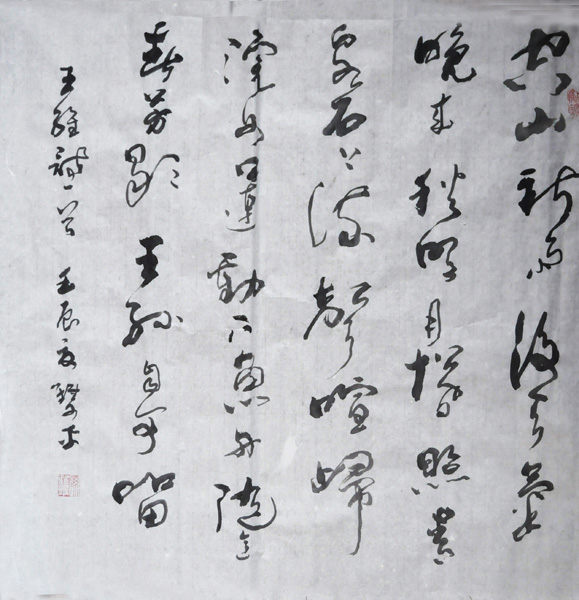 空山新雨後天氣
晚来秋明月松間照清
泉石上流竹喧歸
浣女蓮動下漁舟隨意
春芳歇王孫自可留
王維詩一首 壬辰夏